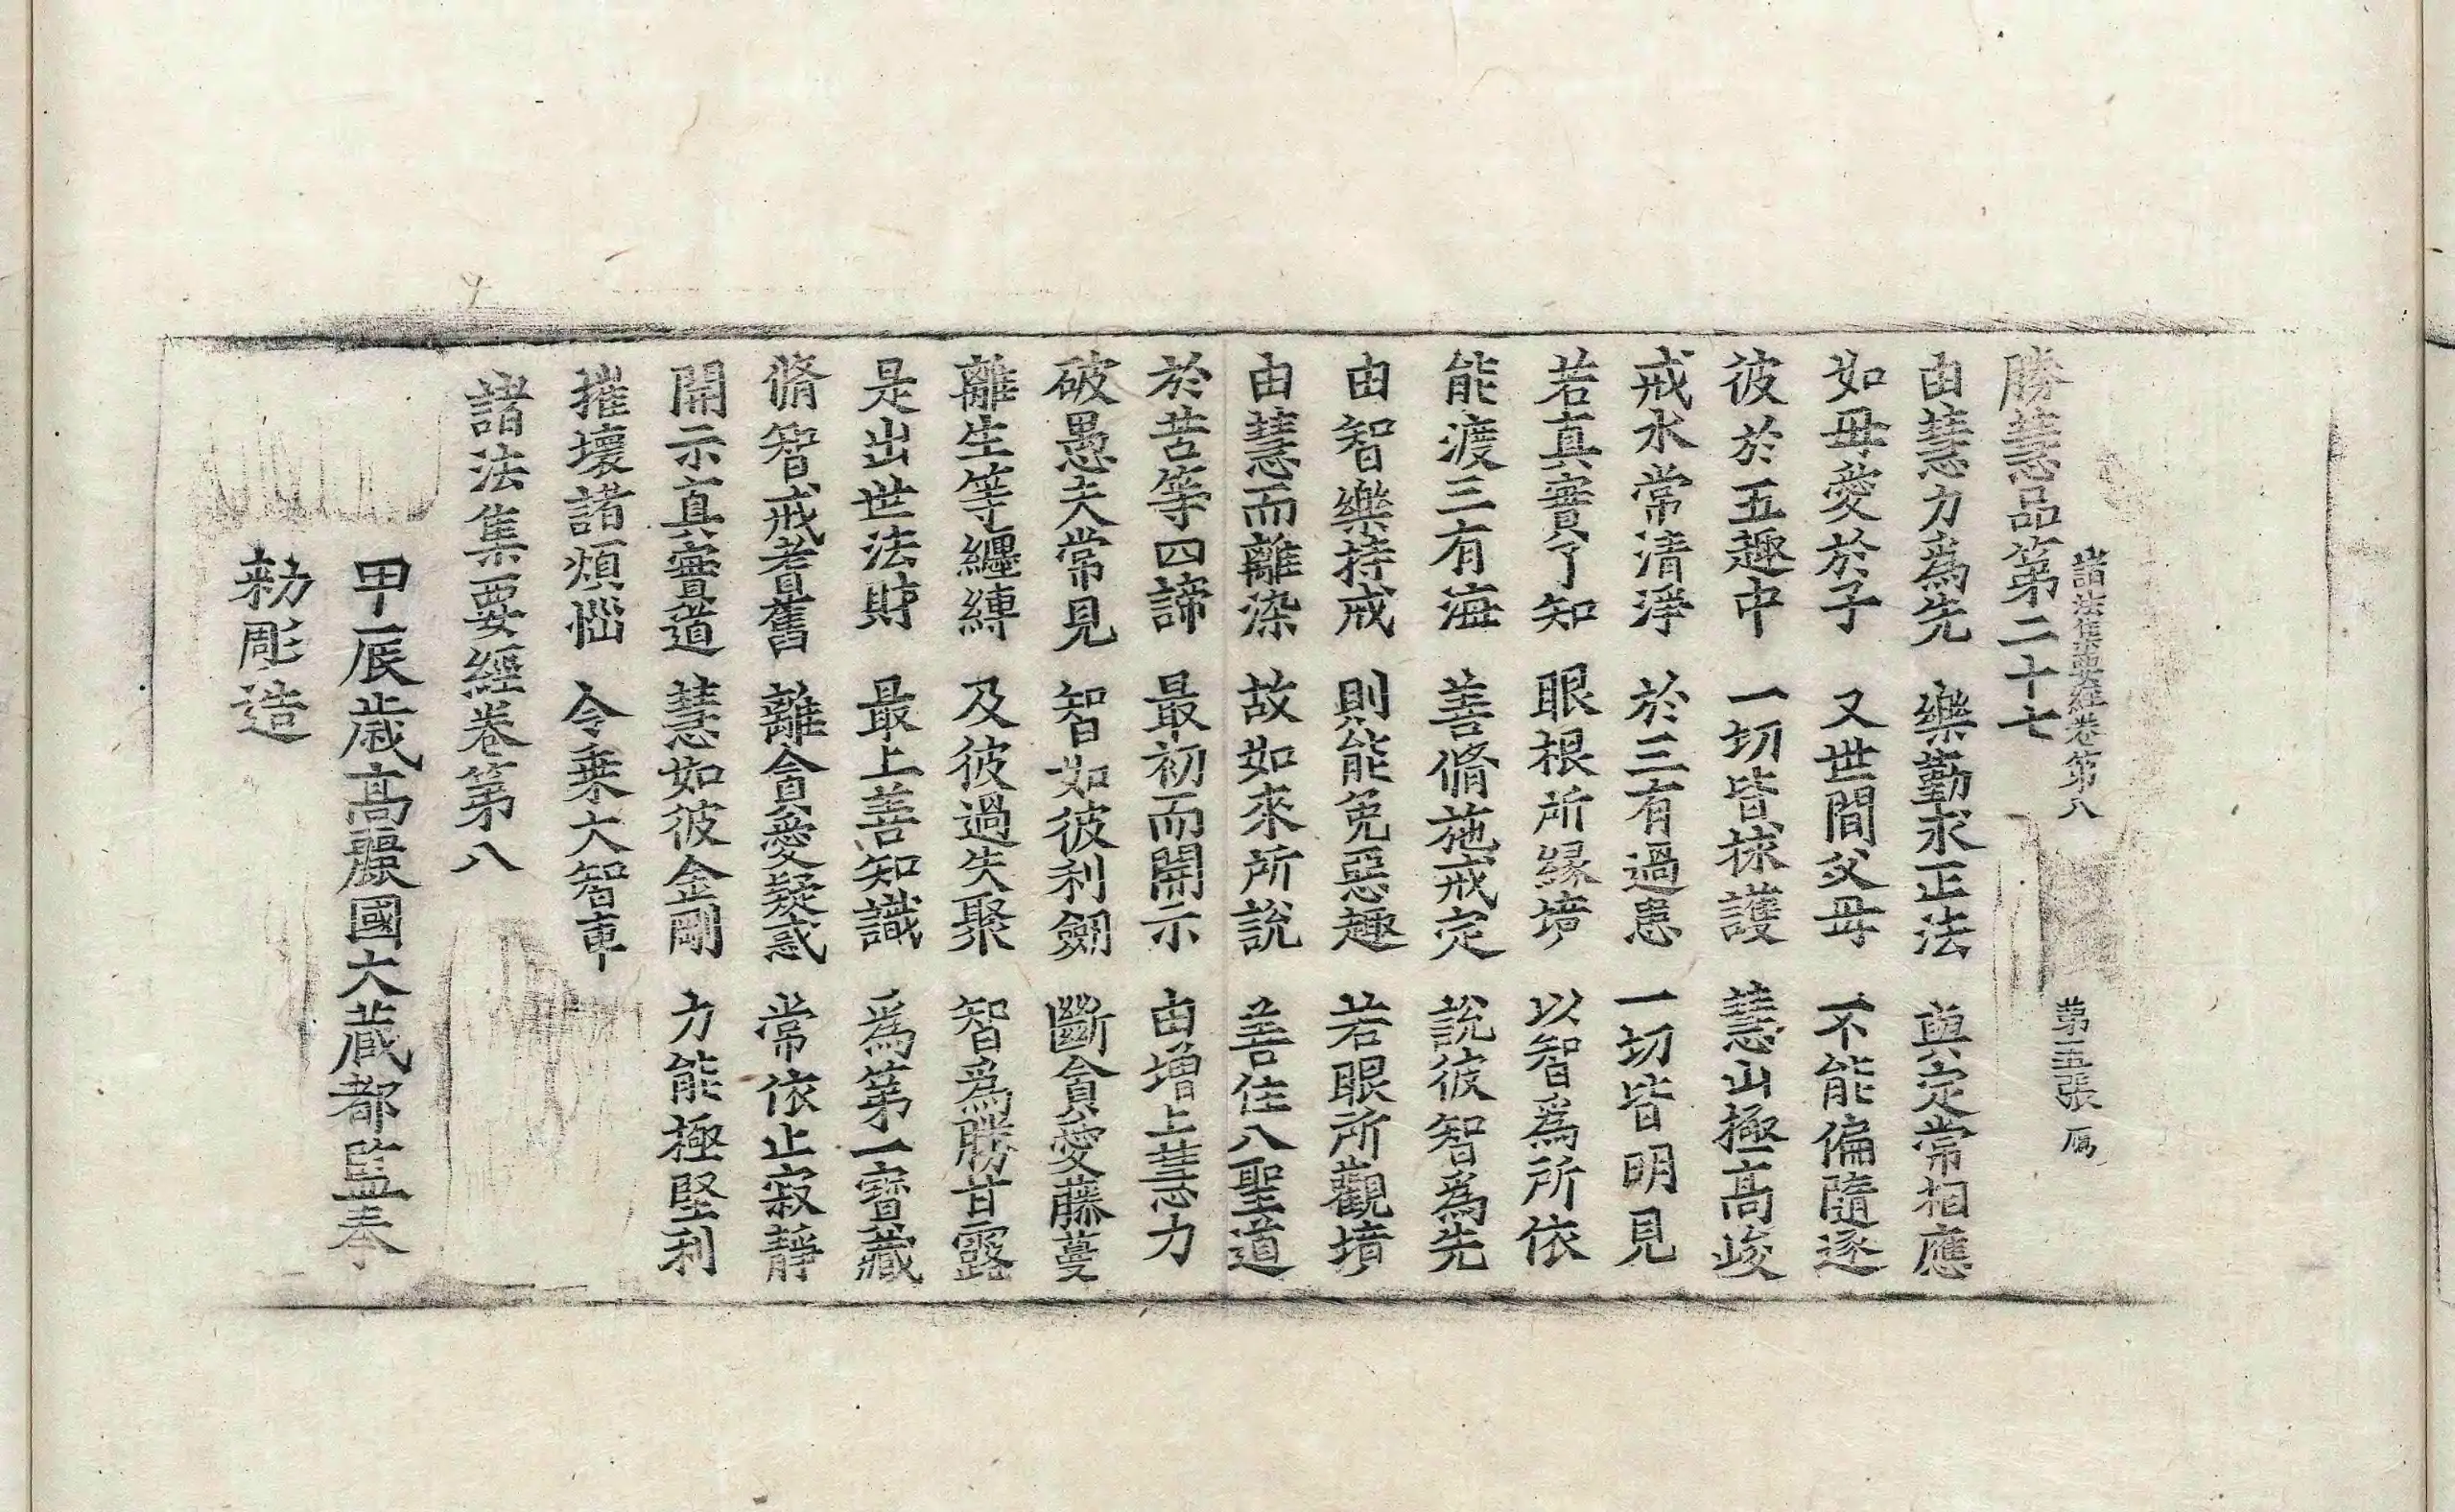 諸法集要經卷第八 第五張 鴈
勝慧品第二十七
由慧力為先 樂勤求正法 與定常相應
如母愛於子 又世間父母 不能偏隨逐
彼於五趣中 一切皆捄護 慧山極高峻
戒水常清淨 於三有過患 一切皆明見
若真實了知 眼根所緣境 以智為所依
能渡三有海 善脩施戒定 說彼智為先
由智樂持戒 則能免惡趣 若眼所觀境
由慧而離染 故如來所說 善住八聖道
於苦等四諦 最初而開示 由增上慧力
破愚夫常見 智如彼利劒 斷貪愛藤蔓
離生等纏縛 及彼過失聚 智為勝甘露
是出世法財 最上善知識 為第一寶藏
脩智戒耆舊 離貪愛疑惑 常依止寂靜
開示真實道 慧如彼金剛 力能極堅利
摧壞諸煩惱 令乗大智車
諸法集要經卷第八
甲辰歲高麗國大藏都監奉
勑彫造